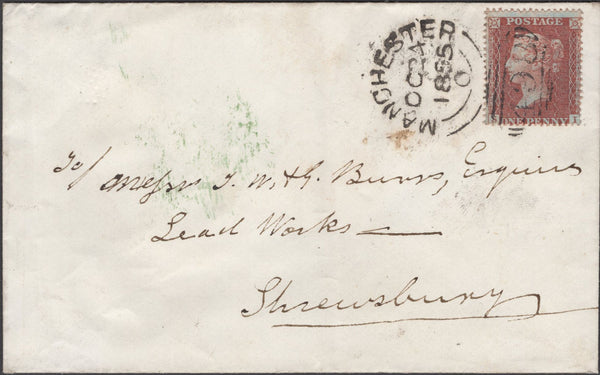 MANCHESTER
OC 24
1855
O
POSTAGE
ONE PENNY
To/ Messrs T. W. & G. Burrs, Esquires
Lead Works
Shrewsbury